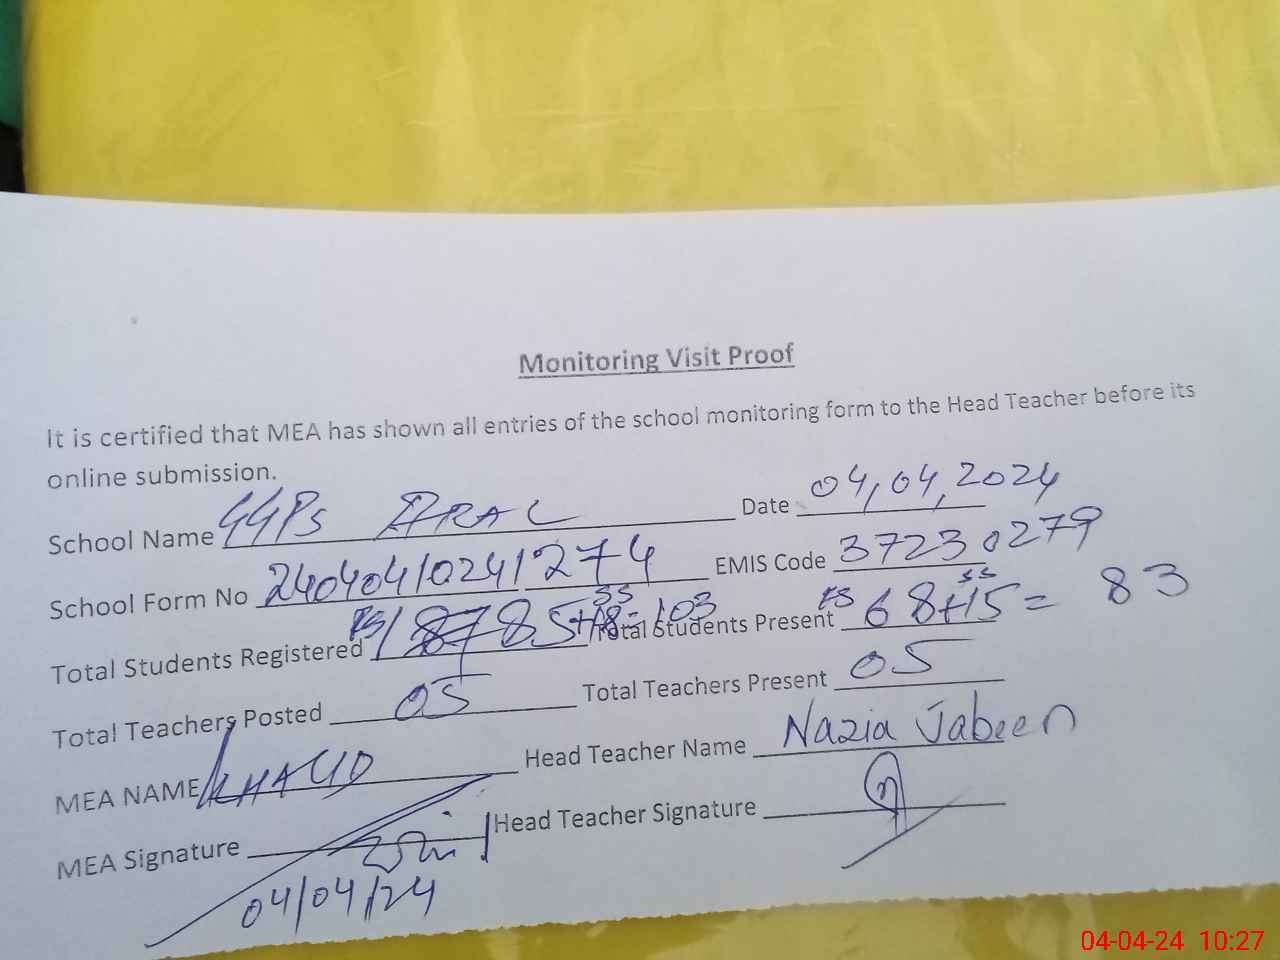 Monitoring Visit Proof
It is certified that MEA has shown all entries of the school monitoring form to the Head Teacher before its
online submission.
School Name GGPs ARAL Date 04,04,2024
School Form No 24040410241274 EMIS Code 37230279
Total Students Registered PS 85+SS 18=103 Total Students Present PS 68+SS 15= 83
Total Teachers Posted 05 Total Teachers Present 05
MEA NAME KHALID Head Teacher Name Nazia Jabeen
MEA Signature Head Teacher Signature
04/04/24
04-04-24 10:27